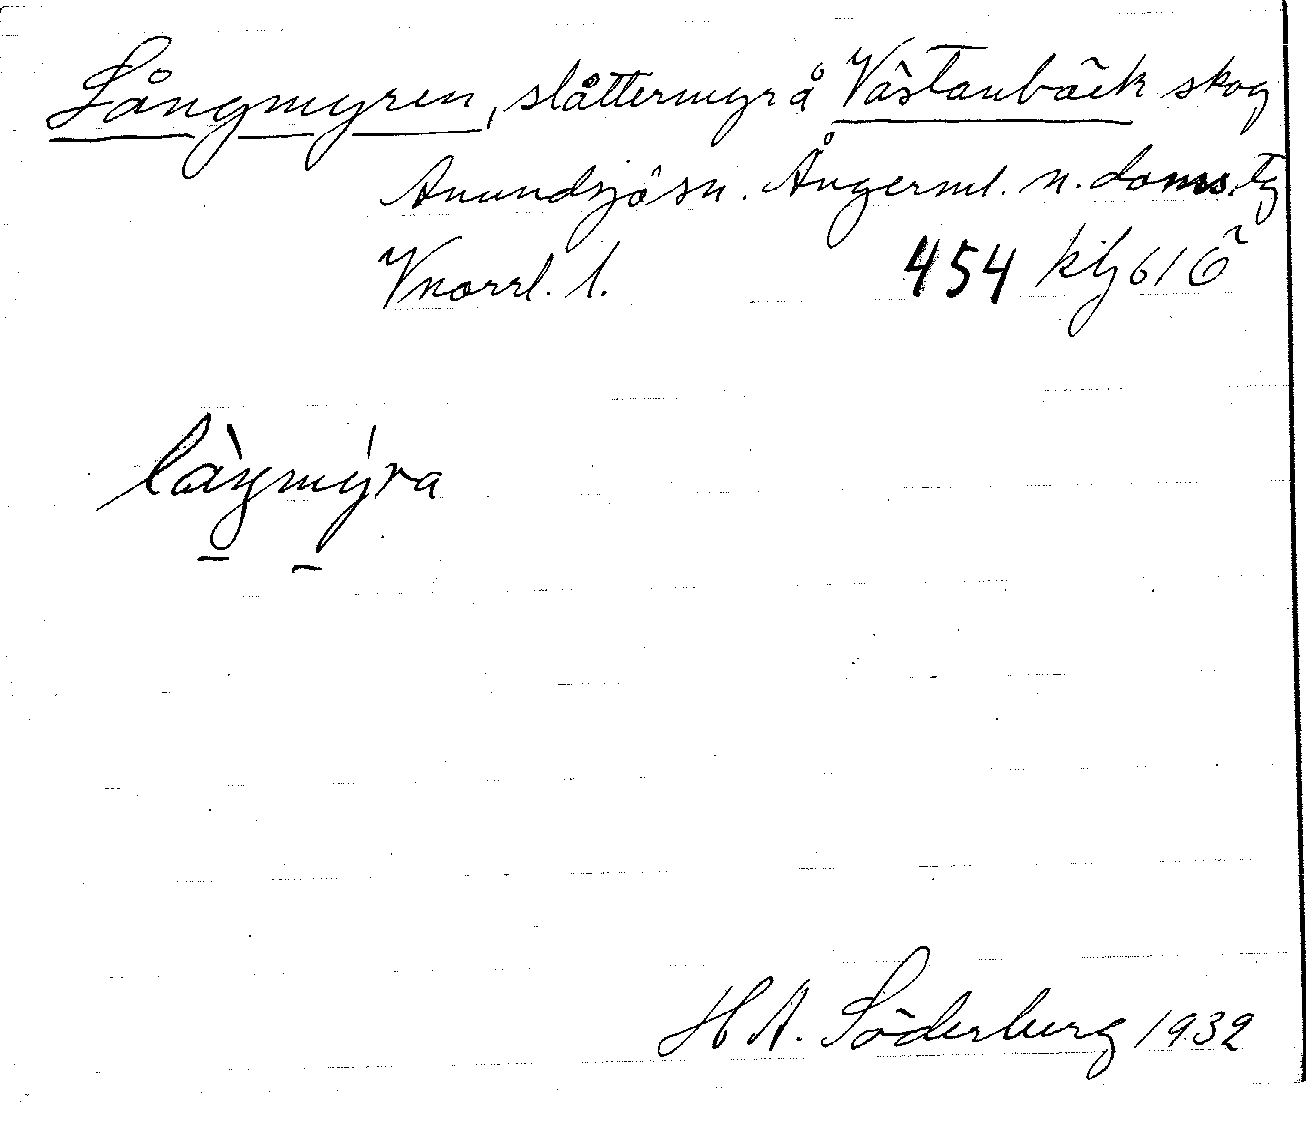 Långmyren, slåttermyr å Västanbäck skog
Anundsjö sn. Ångerml. n. doms. tg
Vnorrl. l. 454 klg 61 Ö
làŋmýra
H A. Söderberg 1932